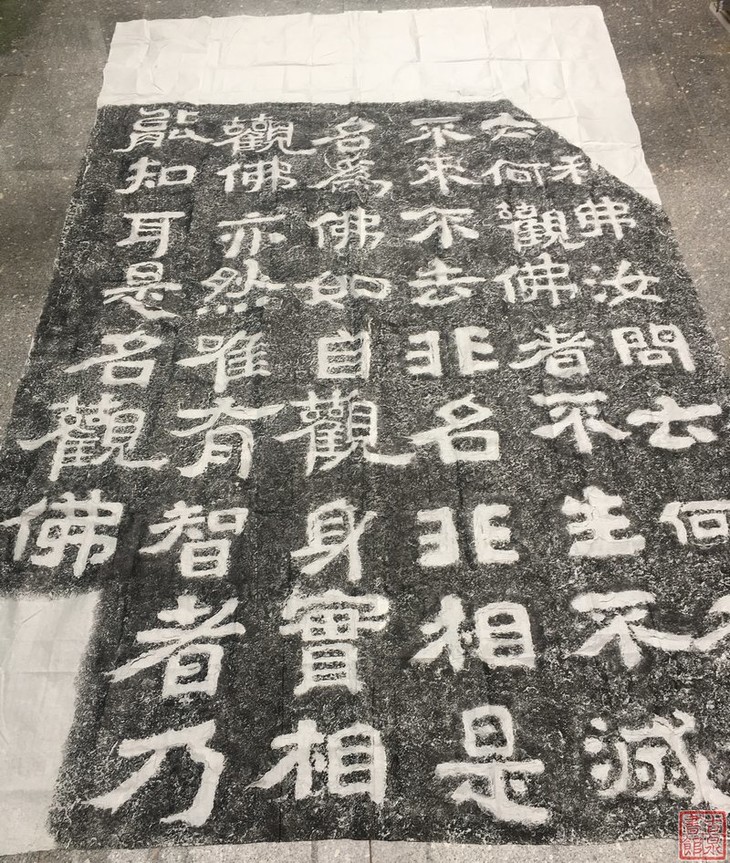 利弗汝問云何
云何觀佛者不生不滅
不來不去非名非相是
名為佛如自觀身實相
觀佛亦然唯有智者乃
能知耳是名觀佛